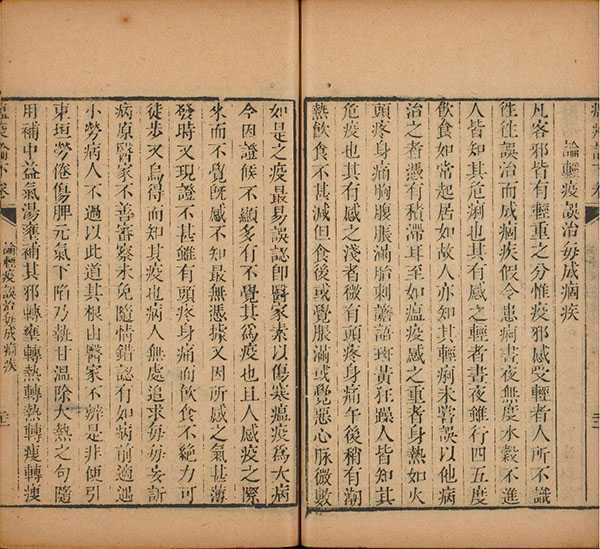 論輕疫誤治每成痼疾
凡客邪皆有輕重之分惟疫邪感受輕者人所不識
徃徃誤治而成痼疾假令患痢晝夜無度水穀不進
人皆知其危痢也其有感之輕者晝夜雖行四五度
飲食如常起居如故人亦知其輕痢未嘗誤以他病
治之者凴有積滯耳至如瘟疫感之重者身熱如火
頭疼身痛胸腹脹滿胎刺譫語斑黃狂躁人皆知其
危疫也其有感之淺者微有頭疼身痛午後稍有潮
熱飲食不甚減但食後或覺脹滿或覺惡心脈微數
如是之疫最易誤認即醫家素以傷寒瘟疫爲大病
今因證候不顯多有不覺其爲疫也且人感疫之際
來而不覺旣感不知最無憑據又因所感之氣甚薄
發時又現證不甚雖有頭疼身痛而飲食不絶力可
徒步又烏得而知其疫也病人無處追求每每妄訴
病原醫家不善審察未免隨情錯認有如病前適遇
小勞病人不過以此道其根由醫家不辨是非便引
東垣勞倦傷脾元氣下陷乃執甘温除大熱之句隨
用補中益氣湯壅補其邪轉壅轉熱轉熱轉瘦轉瘦
論輕疫誤治每成痼疾